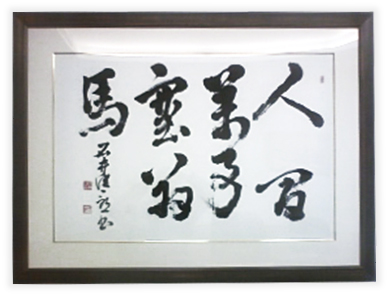 人間
萬事
塞翁
馬